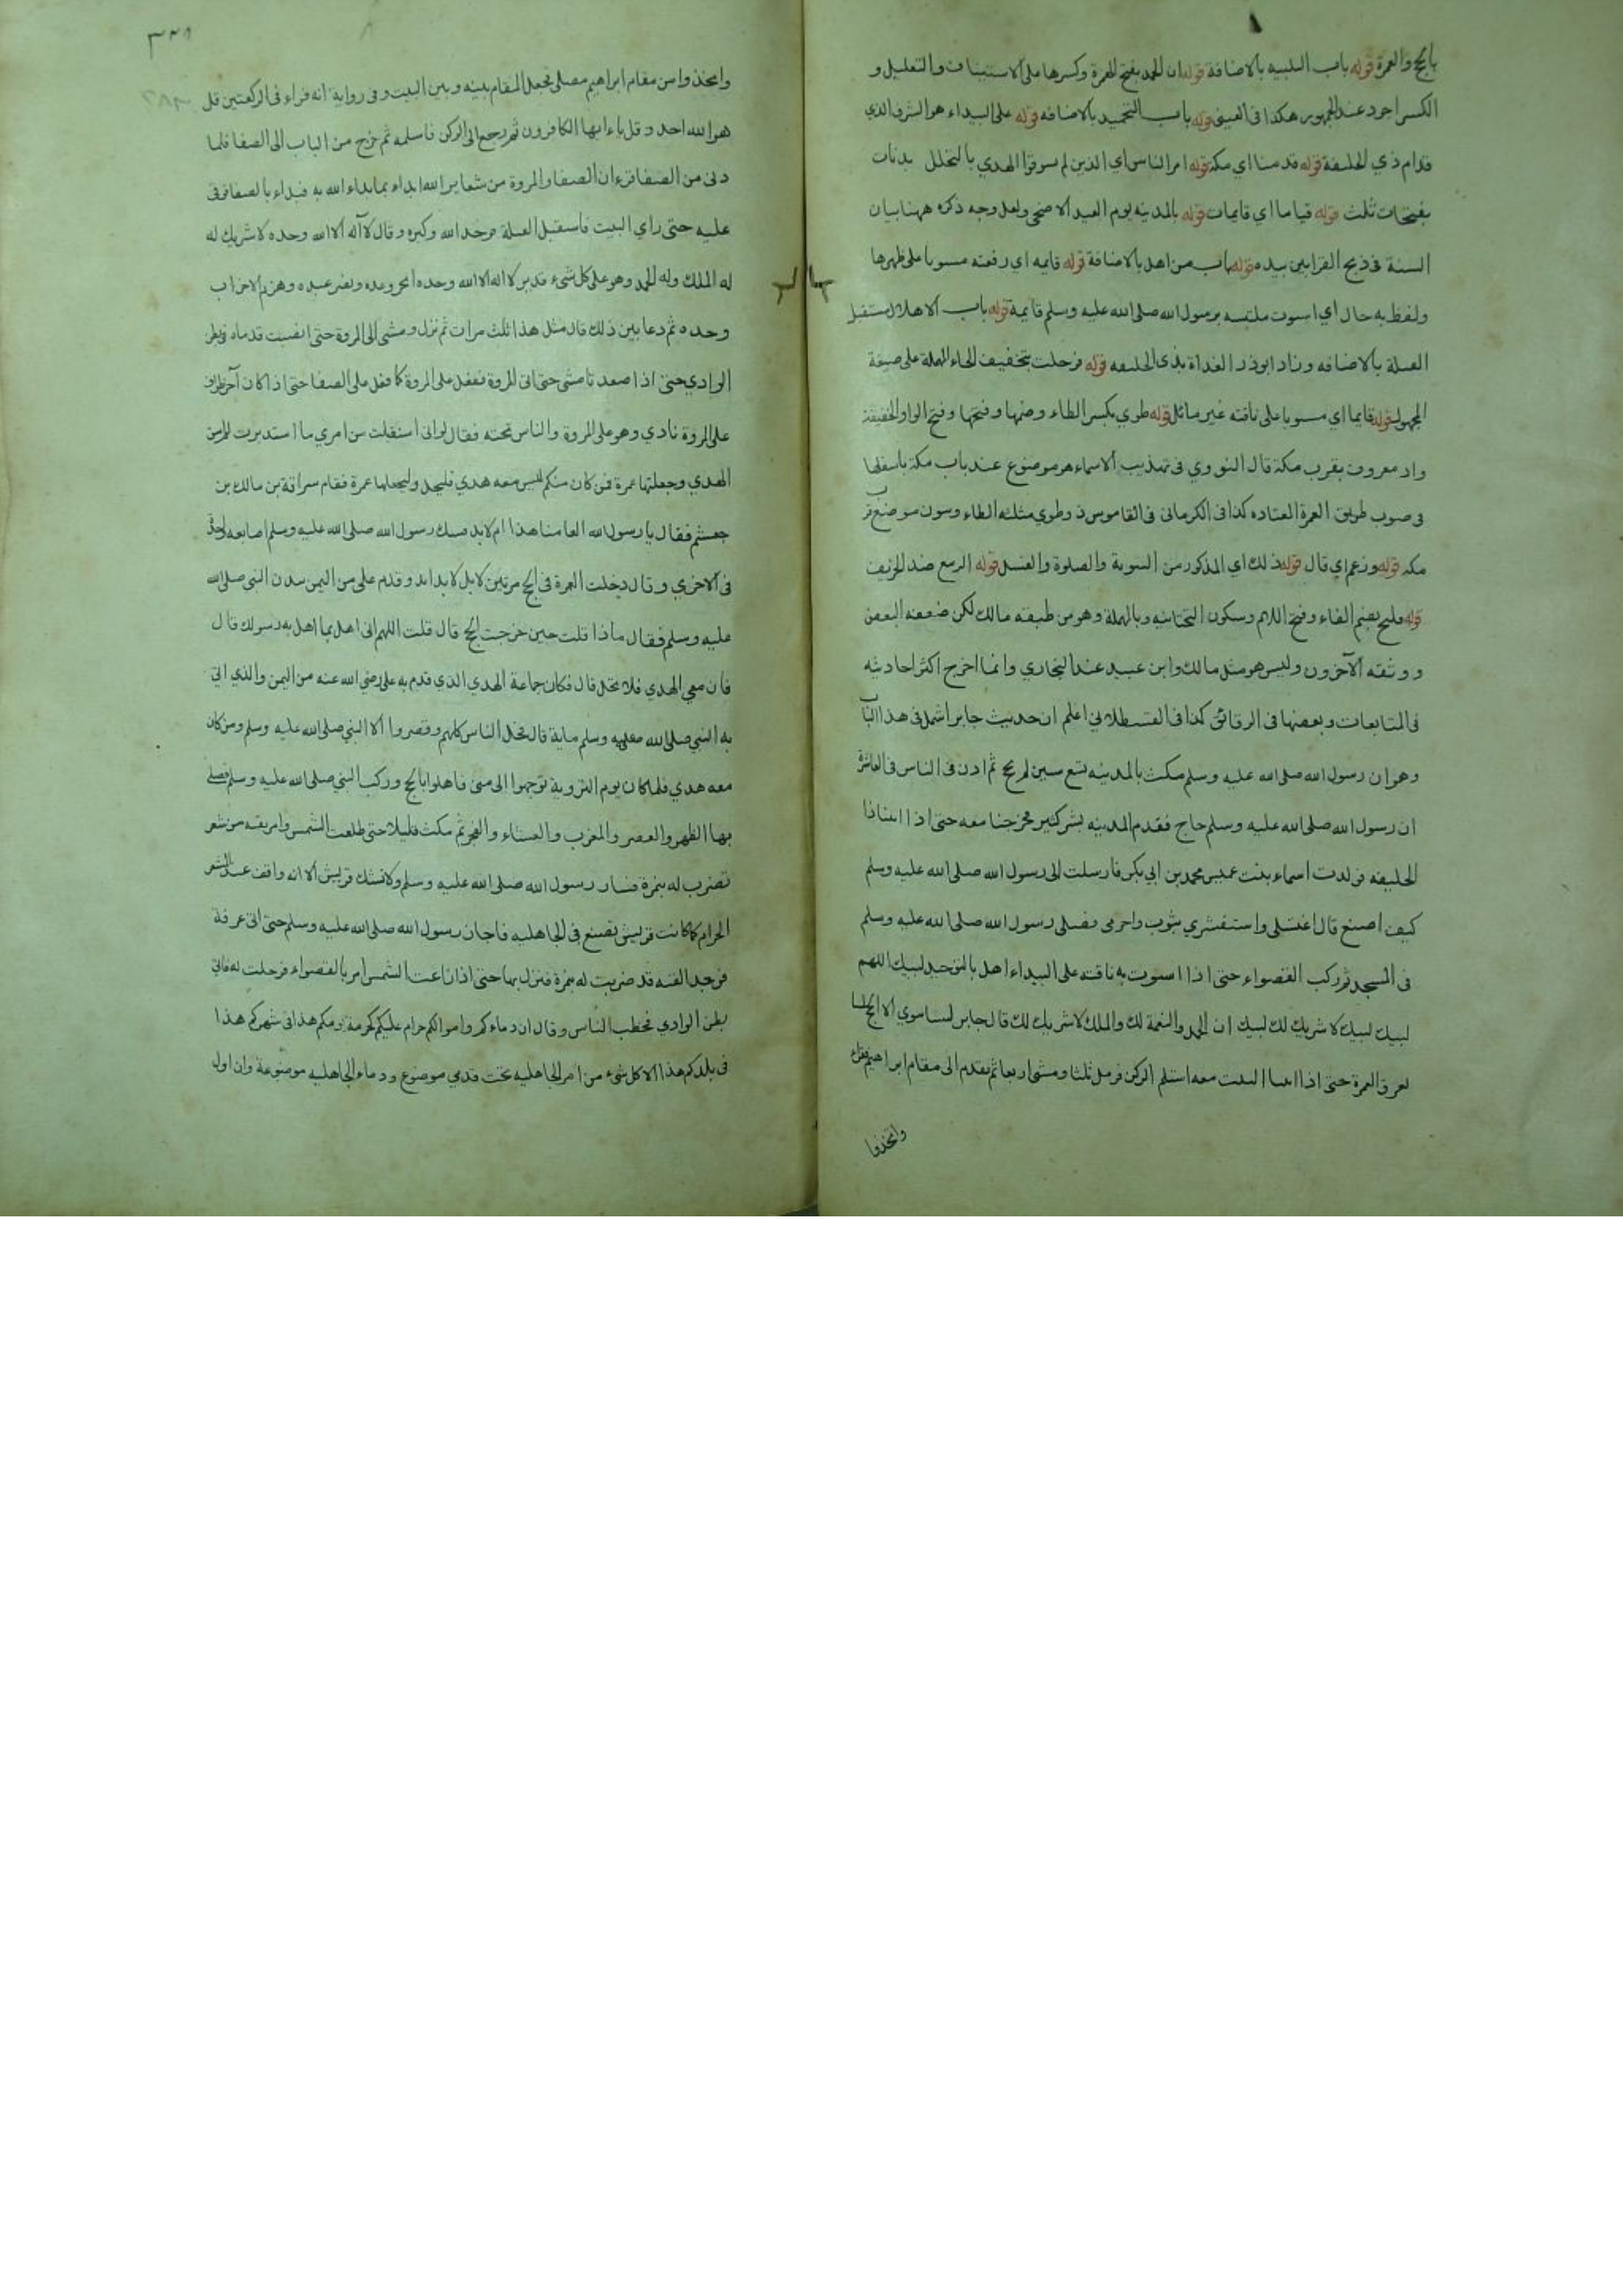 بالحج والعمرة قوله باب التلبيه بالاضافة قوله ان الحمد بفتح الهمزة وكسرها على الاستيناف والتعليل و
الكسر اجود عند الجمهور هكذا فى العينى قوله باب التحميد بالاضافه قوله على البيداء هو الشرف الذي
قدام ذي الحليفة قوله قدمنا اي مكة قوله امر الناس اي الذين لم يسوقوا الهدي بالتحلل بدنات
بفتحات ثلث قوله قياما اي قايمات قوله بالمدينه يوم العيد الاضحى ولعل وجه ذكره ههنا بيان
السنة فى ذبح القرابين بيده قوله باب من اهل بالاضافة قوله قايمه اي رفعته مستويا على ظهرها
ولفظ به حال اي استوت ملتبسه برسول الله صلى الله عليه وسلم قايمة قوله باب الاهلال مستقبل
القبلة بالاضافه وزاد ابوذر الغداة بذى الحليفه قوله فرحلت بتخفيف الحاء المهملة على صيغة
المجهول قوله قايما اي مستويا على ناقته غير مائل قوله طوي بكسر الطاء وضمها وفتحها وفتح الواو الخفيفة
واد معروف بقرب مكة قال النووي فى تهذيب الاسماء هو موضوع عند باب مكة باسفلها
فى صوب طريق العمرة المعتاده كذا فى الكرمانى فى القاموس ذو طوي مثلثه الطاء وينون موضع قرب
مكه قوله وزعم اي قال قوله ذلك اي المذكور من البيتوتة والصلوة والغسل قوله الربيع ضد الخريف
قوله فليح بضم الفاء وفتح اللام وسكون التحتانيه وبالمهملة وهو من طبقه مالك لكن ضعفه البعض
ووثقه الآخرون وليس هو مثل مالك وابن عبيد عند البخاري وانما اخرج اكثر احاديثه
فى المتابعات وبعضها فى الرقائق كذا فى القسطلاني اعلم ان حديث جابر اشمل فى هذا الباب
وهو ان رسول الله صلى الله عليه وسلم مكث بالمدينه تسع سنين لم يحج ثم اذن فى الناس فى العاشرة
ان رسول الله صلى الله عليه وسلم حاج فقدم المدينه بشر كثير فخرجنا معه حتى اذا اتينا ذا
الحليفه فولدت اسماء بنت عميس محمد بن ابي بكر فارسلت الى رسول الله صلى الله عليه وسلم
كيف اصنع قال اغتسلى واستثفري بثوب واحرمى فصلى رسول الله صلى الله عليه وسلم
فى المسجد ثم ركب القصواء حتى اذا استوت به ناقته على البيداء اهل بالتوحيد لبيك اللهم
لبيك لبيك لا شريك لك لبيك ان الحمد والنعمة لك والملك لا شريك لك قال جابر لسنا ننوي الا الحج لسنا
نعرف العمرة حتى اذا اتينا البيت معه استلم الركن فرمل ثلثا ومشى اربعا ثم تقدم الى مقام ابراهيم فقراء
واتخذوا
واتخذوا من مقام ابراهيم مصلى فجعل المقام بينه وبين البيت وفى رواية انه قراء فى الركعتين قل
هو الله احد وقل ياءايها الكافرون ثم رجع الى الركن فاستلمه ثم خرج من الباب الى الصفا فلما
دنى من الصفا قرء ان الصفا والمروة من شعاير الله ابداء بما بداء الله به فبداء بالصفا فرقى
عليه حتى راي البيت فاستقبل القبلة فوحد الله وكبره وقال لا آله الا الله وحده لا شريك له
له الملك وله الحمد وهو على كل شيء قدير لا اله الا الله وحده انجز وعده ونصر عبده وهزم الاحزاب
وحده ثم دعا بين ذلك قال مثل هذا ثلث مرات ثم نزل ومشى الى المروة حتى انصبت قدماه فى بطن
الوادي حتى اذا صعدتا مشى حتى اتى المروة ففعل على المروة كما فعل على الصفا حتى اذا كان آخر طواف
على المروة نادي وهو على المروة والناس تحته فقال لو انى استقبلت من امري ما استدبرت لم اسق
الهدي وجعلتها عمرة فمن كان منكم ليس معه هدي فليحل وليجعلها عمرة فقام سراقة بن مالك بن
جعشم فقال يا رسول الله العامنا هذا ام لابد فشبك رسول الله صلى الله عليه وسلم اصابعه واحدة
فى الاخري وقال دخلت العمرة فى الحج مرتين لا بل لابد ابد وقدم على من اليمن ببدن النبى صلى الله
عليه وسلم فقال ماذا قلت حين فرضت الحج قال قلت اللهم انى اهل بما اهل به رسولك قال
فان معي الهدي فلا تحل قال فكان جماعة الهدي الذي قدم به على رضي الله عنه من اليمن والذي اتى
به النبي صلى الله عليه وسلم ماية قال فحل الناس كلهم وقصروا الا النبي صلى الله عليه وسلم ومن كان
معه هدي فلما كان يوم التروية توجهوا الى منى فاهلوا بالحج وركب النبي صلى الله عليه وسلم فصلى
بها الظهر والعصر والمغرب والعشاء والفجر ثم مكث قليلا حتى طلعت الشمس وامر بقبه من شعر
تضرب له بنمرة فسار رسول الله صلى الله عليه وسلم ولا تشك قريش الا انه واقف عند المشعر
الحرام كما كانت قريش تصنع فى الجاهليه فاجاز رسول الله صلى الله عليه وسلم حتى اتى عرفة
فوجد القبه قد ضربت له بنمرة فنزل بها حتى اذا زاغت الشمس امر بالقصواء فرحلت له فاتى
بطن الوادي فخطب الناس وقال ان دماءكم واموالكم حرام عليكم كحرمة يومكم هذا فى شهركم هذا
فى بلدكم هذا الا كل شيء من امر الجاهليه تحت قدمي موضوع ودماء الجاهليه موضوعة وان اول